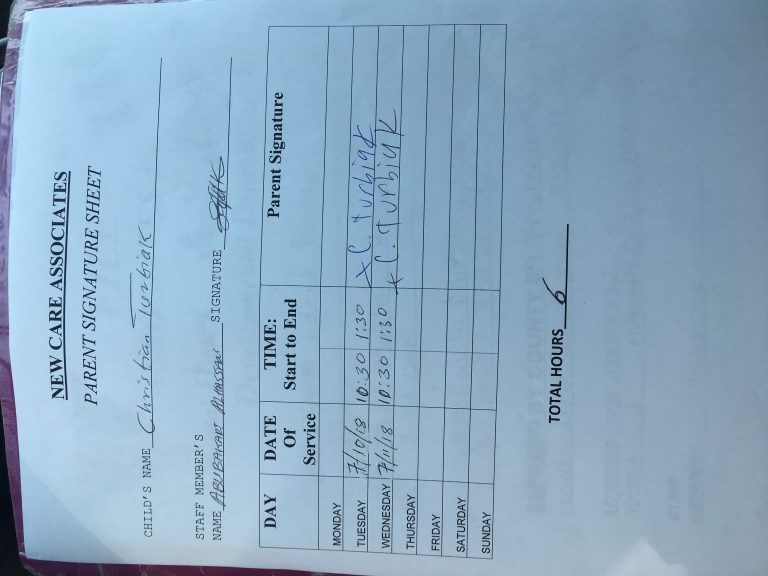 NEW CARE ASSOCIATES
PARENT SIGNATURE SHEET
CHILD'S NAME Christian Turbiak
STAFF MEMBER'S
NAME ABUBAKARI SIGNATURE
DAY DATE Of Service TIME: Start to End Parent Signature
MONDAY
TUESDAY 7/10/18 10:30 1:30 x C. Turbiak
WEDNESDAY 7/11/18 10:30 1:30 x C. Turbiak
THURSDAY
FRIDAY
SATURDAY
SUNDAY
TOTAL HOURS 6